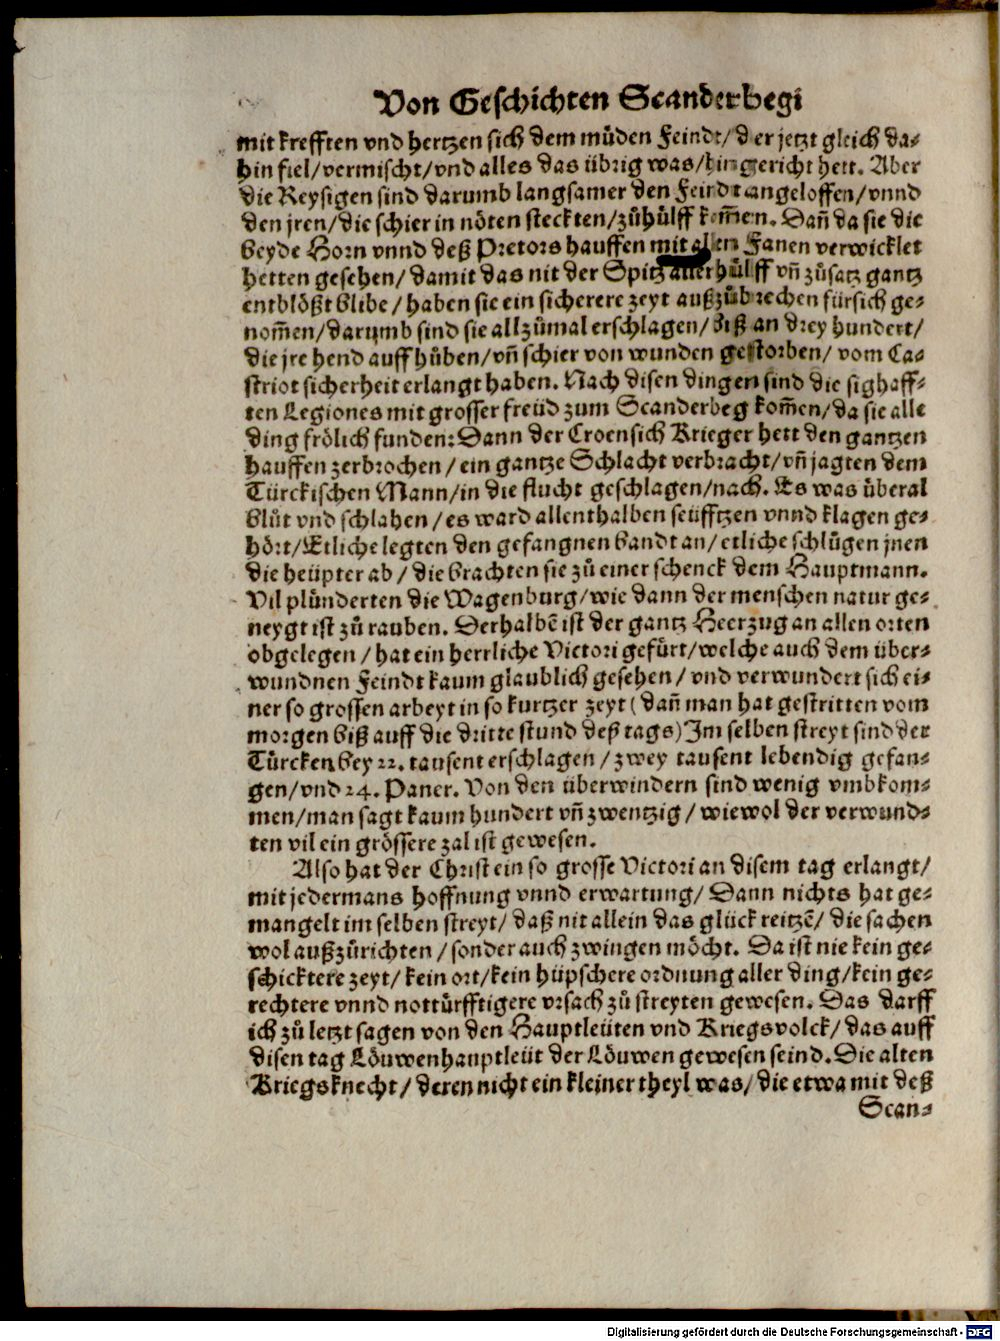 Von Geschichten Scanderbegi
mit krefften vnd hertzen sich dem müden Feindt/ der jetzt gleich da⸗
hin fiel/ vermischt/ vnd alles das übrig was/ hingericht hett. Aber
die Reysigen sind darumb langsamer den Feindt angeloffen/ vnnd
den jren/ die schier in nöten steckten/ zůhülff kom̃en. Dañ da sie die
beyde Horn vnnd deß Pretors hauffen mit allen Fanen verwicklet
hetten gesehen/ damit das nit der Spitz aller hülff vñ zůsatz gantz
entblößt blibe/ haben sie ein sicherere zeyt außzůbrechen fürsich ge⸗
nom̃en/ darumb sind sie allzůmal erschlagen/ biß an drey hundert/
die jre hend auff hůben/ vñ schier von wunden gestorben/ vom Ca⸗
striot sicherheit erlangt haben. Nach disen dingen sind die sighaff⸗
ten Legiones mit grosser freüd zum Scanderbeg kom̃en/ da sie alle
ding frölich funden: Dann der Croensich Krieger hett den gantzen
hauffen zerbrochen/ ein gantze Schlacht verbracht/ vñ jagten dem
Türckischen Mann/ in die flucht geschlagen/ nach. Es was überal
blůt vnd schlahen/ es ward allenthalben seüfftzen vnnd klagen ge⸗
hört/ Etliche legten den gefangnen bandt an/ etliche schlůgen jnen
die heüpter ab/ die brachten sie zů einer schenck dem Hauptmann.
Vil plünderten die Wagenburg/ wie dann der menschen natur ge⸗
neygt ist zů rauben. Derhalbẽ ist der gantz Heerzug an allen orten
obgelegen/ hat ein herrliche Victori gefürt/ welche auch dem über⸗
wundnen Feindt kaum glaublich gesehen/ vnd verwundert sich ei⸗
ner so grossen arbeyt in so kurtzer zeyt (dañ man hat gestritten vom
morgen biß auff die dritte stund deß tags) Im selben streyt sind der
Türcken bey 22. tausent erschlagen/ zwey tausent lebendig gefan⸗
gen/ vnd 24. Paner. Von den überwindern sind wenig vmbkom⸗
men/ man sagt kaum hundert vñ zwentzig/ wiewol der verwund⸗
ten vil ein grössere zal ist gewesen.
Also hat der Christ ein so grosse Victori an disem tag erlangt/
mit jedermans hoffnung vnnd erwartung/ Dann nichts hat ge⸗
mangelt im selben streyt/ daß nit allein das glück reitzẽ/ die sachen
wol außzůrichten/ sonder auch zwingen möcht. Da ist nie kein ge⸗
schicktere zeyt/ kein ort/ kein hüpschere ordnung aller ding/ kein ge⸗
rechtere vnnd nottürfftigere vrsach zů streyten gewesen. Das darff
ich zů letzt sagen von den Hauptleüten vnd Kriegsvolck/ das auff
disen tag Löuwenhauptleüt der Löuwen gewesen seind. Die alten
Kriegsknecht/ deren nicht ein kleiner theyl was/ die etwa mit deß
Scan⸗
Digitalisierung gefördert durch die Deutsche Forschungsgemeinschaft - DFG